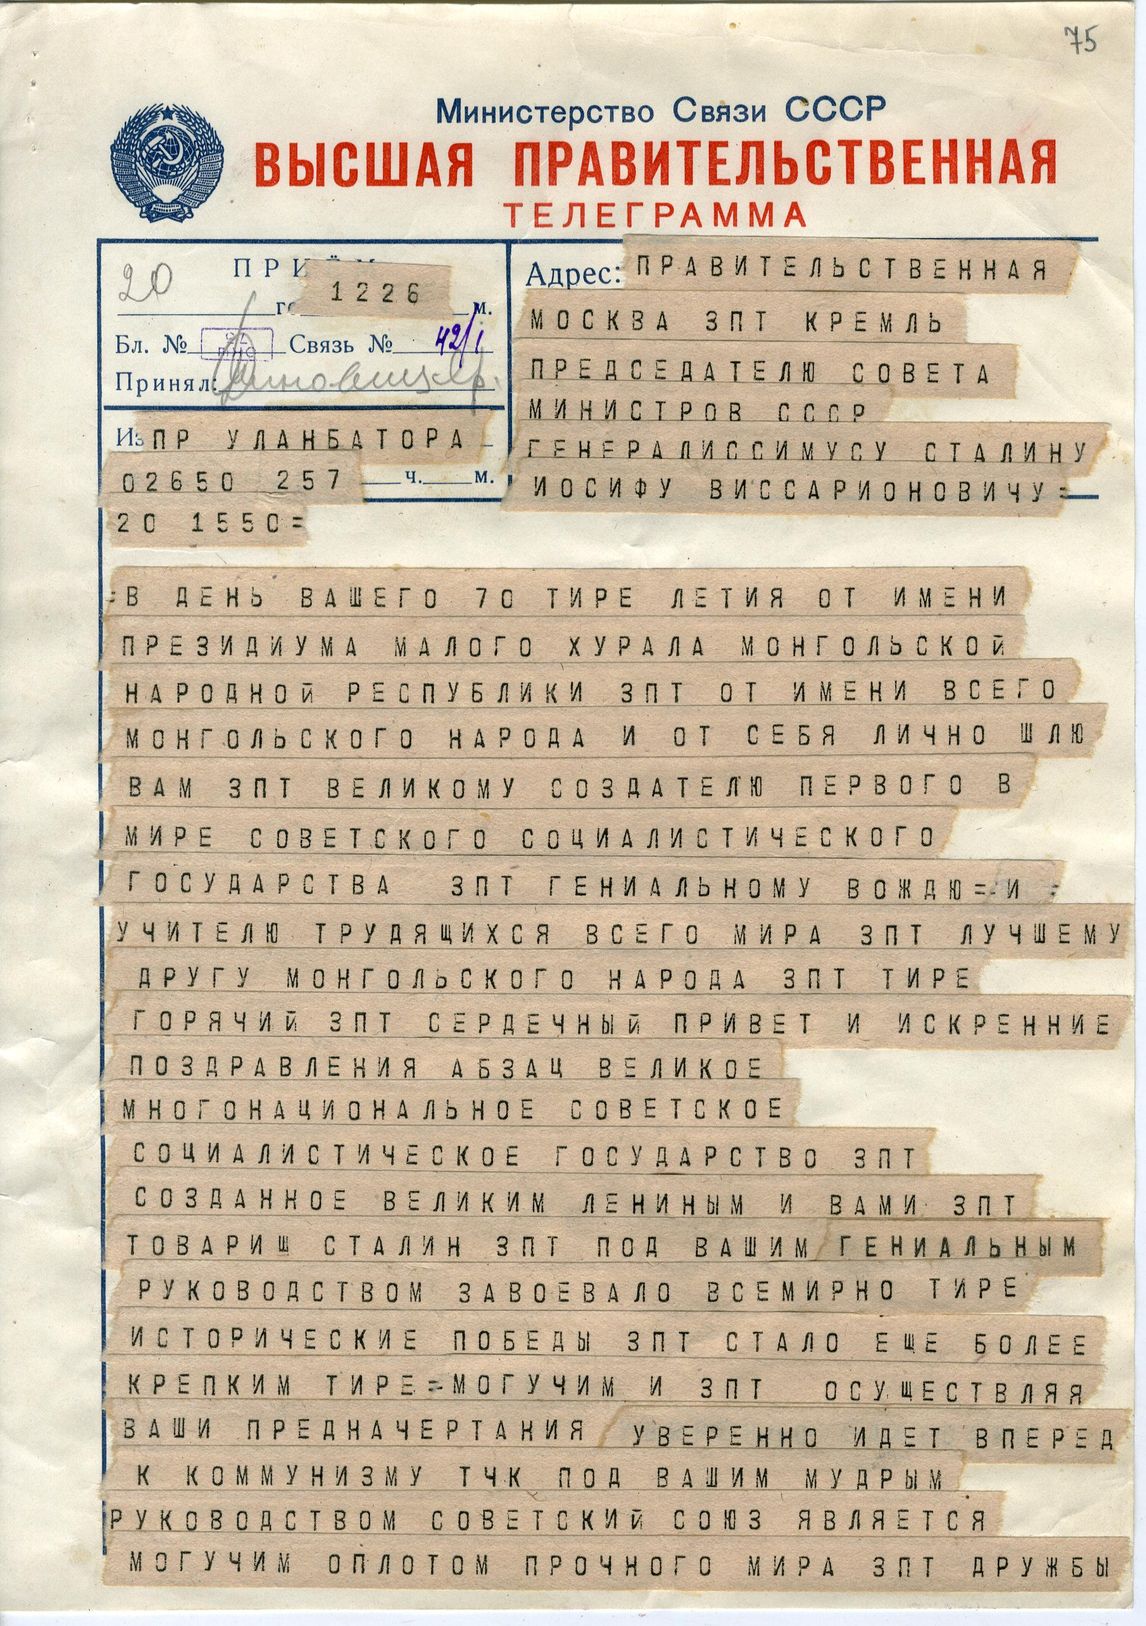 75
Министерство Связи СССР
ВЫСШАЯ ПРАВИТЕЛЬСТВЕННАЯ
ТЕЛЕГРАММА
20
1226 м.
Бл. № Связь № 42/1
Принял:
Из ПР УЛАНБАТОРА
02650 257 ч. м.
20 1550=
Адрес: ПРАВИТЕЛЬСТВЕННАЯ
МОСКВА ЗПТ КРЕМЛЬ
ПРЕДСЕДАТЕЛЮ СОВЕТА
МИНИСТРОВ СССР
ГЕНЕРАЛИССИМУСУ СТАЛИНУ
ИОСИФУ ВИССАРИОНОВИЧУ=
=В ДЕНЬ ВАШЕГО 70 ТИРЕ ЛЕТИЯ ОТ ИМЕНИ
ПРЕЗИДИУМА МАЛОГО ХУРАЛА МОНГОЛЬСКОЙ
НАРОДНОЙ РЕСПУБЛИКИ ЗПТ ОТ ИМЕНИ ВСЕГО
МОНГОЛЬСКОГО НАРОДА И ОТ СЕБЯ ЛИЧНО ШЛЮ
ВАМ ЗПТ ВЕЛИКОМУ СОЗДАТЕЛЮ ПЕРВОГО В
МИРЕ СОВЕТСКОГО СОЦИАЛИСТИЧЕСКОГО
ГОСУДАРСТВА ЗПТ ГЕНИАЛЬНОМУ ВОЖДЮ=И =
УЧИТЕЛЮ ТРУДЯЩИХСЯ ВСЕГО МИРА ЗПТ ЛУЧШЕМУ
ДРУГУ МОНГОЛЬСКОГО НАРОДА ЗПТ ТИРЕ
ГОРЯЧИЙ ЗПТ СЕРДЕЧНЫЙ ПРИВЕТ И ИСКРЕННИЕ
ПОЗДРАВЛЕНИЯ АБЗАЦ ВЕЛИКОЕ
МНОГОНАЦИОНАЛЬНОЕ СОВЕТСКОЕ
СОЦИАЛИСТИЧЕСКОЕ ГОСУДАРСТВО ЗПТ
СОЗДАННОЕ ВЕЛИКИМ ЛЕНИНЫМ И ВАМИ ЗПТ
ТОВАРИЩ СТАЛИН ЗПТ ПОД ВАШИМ ГЕНИАЛЬНЫМ
РУКОВОДСТВОМ ЗАВОЕВАЛО ВСЕМИРНО ТИРЕ
ИСТОРИЧЕСКИЕ ПОБЕДЫ ЗПТ СТАЛО ЕЩЕ БОЛЕЕ
КРЕПКИМ ТИРЕ=МОГУЧИМ И ЗПТ ОСУЩЕСТВЛЯЯ
ВАШИ ПРЕДНАЧЕРТАНИЯ УВЕРЕННО ИДЕТ ВПЕРЕД
К КОММУНИЗМУ ТЧК ПОД ВАШИМ МУДРЫМ
РУКОВОДСТВОМ СОВЕТСКИЙ СОЮЗ ЯВЛЯЕТСЯ
МОГУЧИМ ОПЛОТОМ ПРОЧНОГО МИРА ЗПТ ДРУЖБЫ